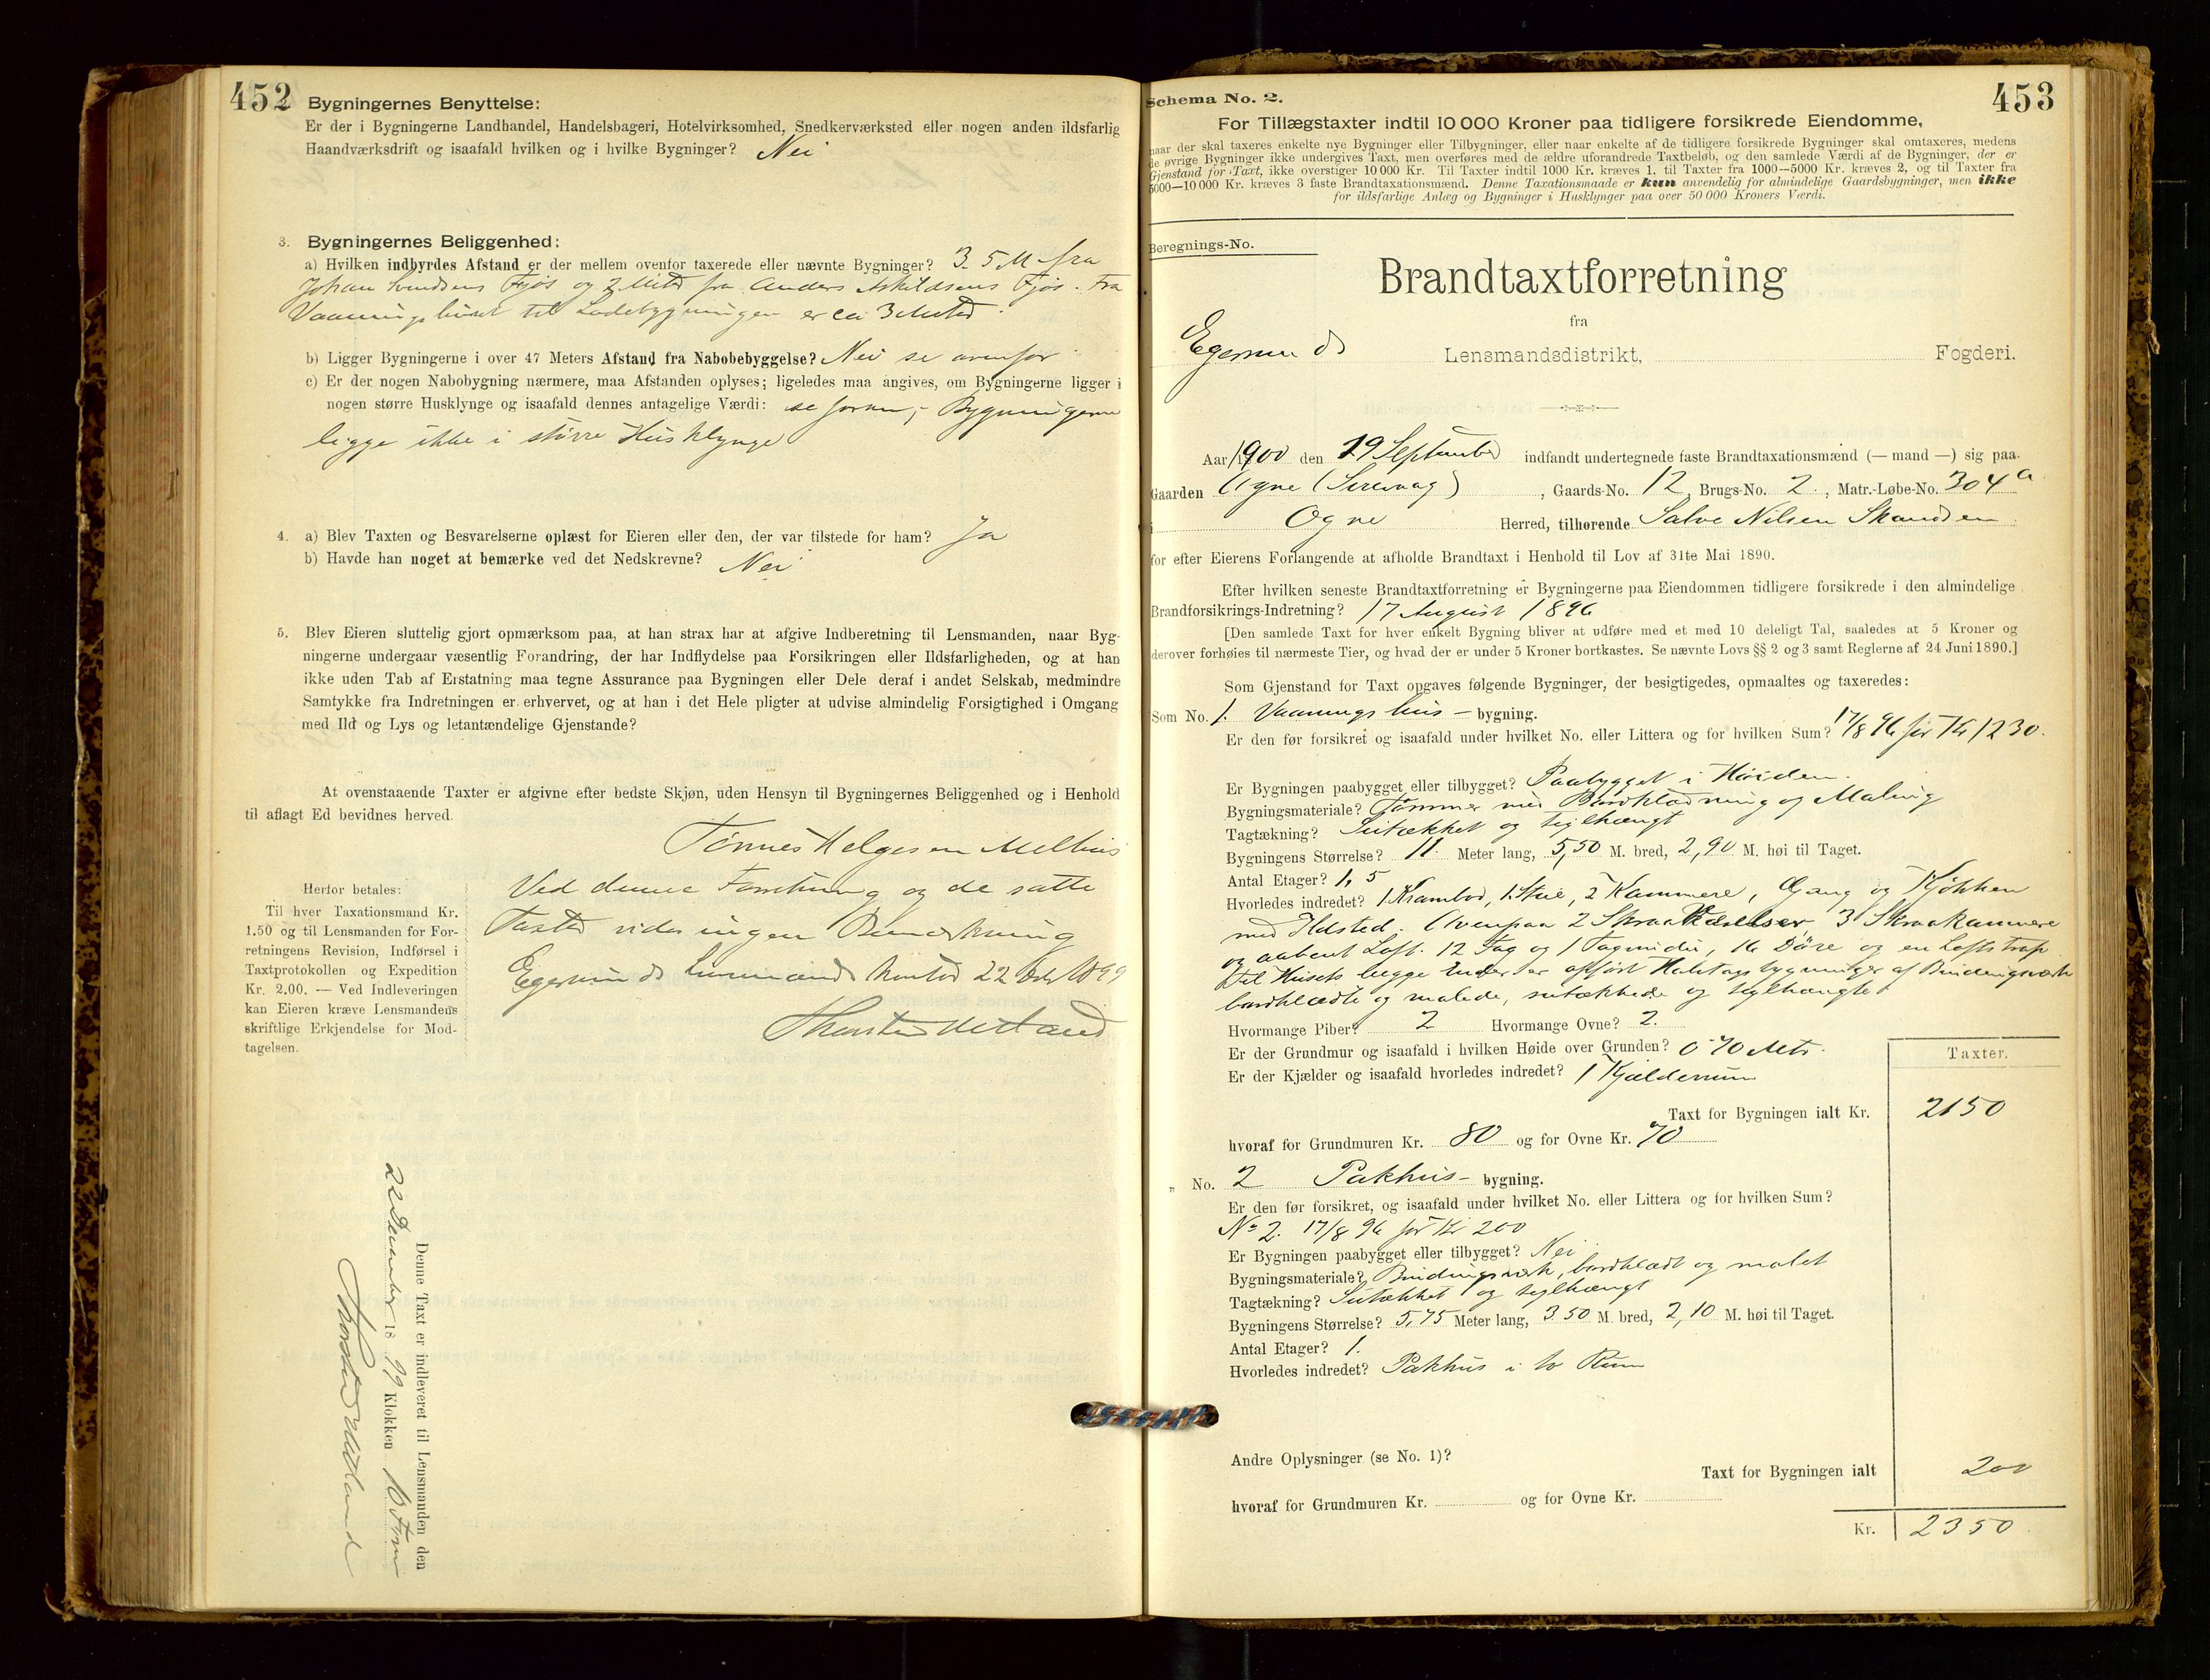 452
Bygningernes Benyttelse:
Er der i Bygningerne Landhandel, Handelsbageri, Hotelvirksomhed, Snedkerværksted eller nogen anden ildsfarlig
Haandværksdrift og isaafald hvilken og i hvilke Bygninger? Nei
3. Bygningernes Beliggenhed:
a) Hvilken indbyrdes Afstand er der mellem ovenfor taxerede eller nævnte Bygninger? 3.5 M fra
Johan Svendsens Fjøs og 2 Meter fra Anders Askildsens Fjøs. Fra
Vaaningshuset til Ladebygningen er ca 3 Meter.
b) Ligger Bygningerne i over 47 Meters Afstand fra Nabobebyggelse? Nei se ovenfor
c) Er der nogen Nabobygning nærmere, maa Afstanden oplyses; ligeledes maa angives, om Bygningerne ligger i
nogen større Husklynge og isaafald dennes antagelige Værdi: se foran, - Bygningerne
ligge ikke i større Husklynge
4. a) Blev Taxten og Besvarelserne oplæst for Eieren eller den, der var tilstede for ham? Ja
b) Havde han noget at bemærke ved det Nedskrevne? Nei
5. Blev Eieren sluttelig gjort opmærksom paa, at han strax har at afgive Indberetning til Lensmanden, naar Byg-
ningerne undergaar væsentlig Forandring, der har Indflydelse paa Forsikringen eller Ildsfarligheden, og at han
ikke uden Tab af Erstatning maa tegne Assurance paa Bygningen eller Dele deraf i andet Selskab, medmindre
Samtykke fra Indretningen er erhvervet, og at han i det Hele pligter at udvise almindelig Forsigtighed i Omgang
med Ild og Lys og letantændelige Gjenstande?
At ovenstaaende Taxter er afgivne efter bedste Skjøn, uden Hensyn til Bygningernes Beliggenhed og i Henhold
til aflagt Ed bevidnes herved.
Tønnes Helgesen Melhus
Ved denne Forretning og de satte
Taxter vides ingen Bemærkning
Egersunds Lensmands Kontor 22 Dcbr 1899
Thorsten Midtland
Herfor betales:
Til hver Taxationsmand Kr.
1.50 og til Lensmanden for For-
retningens Revision, Indførsel i
Taxtprotokollen og Expedition
Kr. 2.00. — Ved Indleveringen
kan Eieren kræve Lensmandens
skriftlige Erkjendelse for Mod-
tagelsen.
Denne Taxt er indleveret til Lensmanden den
22 December 1899 Klokken 10 Form
Thorsten Midtland
453
Schema No. 2.
For Tillægstaxter indtil 10 000 Kroner paa tidligere forsikrede Eiendomme,
naar der skal taxeres enkelte nye Bygninger eller Tilbygninger, eller naar enkelte af de tidligere forsikrede Bygninger skal omtaxeres, medens
de øvrige Bygninger ikke undergives Taxt, men overføres med de ældre uforandrede Taxtbeløb, og den samlede Værdi af de Bygninger, der er
Gjenstand for Taxt, ikke overstiger 10 000 Kr. Til Taxter indtil 1000 Kr. kræves 1, til Taxter fra 1000—5000 Kr. kræves 2, og til Taxter fra
5000—10 000 Kr. kræves 3 faste Brandtaxationsmænd. Denne Taxationsmaade er kun anvendelig for almindelige Gaardsbygninger, men ikke
for ildsfarlige Anlæg og Bygninger i Husklynger paa over 50 000 Kroners Værdi.
Beregnings-No.
Brandtaxtforretning
fra
Egersunds Lensmandsdistrikt, Fogderi.
Aar 1900 den 29 September indfandt undertegnede faste Brandtaxationsmænd (— mand —) sig paa
Gaarden Ogne (Sirevaag), Gaards-No. 12, Brugs-No. 2, Matr.-Løbe-No. 304a
i Ogne Herred, tilhørende Salve Nilsen Skandsen
for efter Eierens Forlangende at afholde Brandtaxt i Henhold til Lov af 31te Mai 1890.
Efter hvilken seneste Brandtaxtforretning er Bygningerne paa Eiendommen tidligere forsikrede i den almindelige
Brandforsikrings-Indretning? 17 August 1896
[Den samlede Taxt for hver enkelt Bygning bliver at udføre med et med 10 deleligt Tal, saaledes at 5 Kroner og
derover forhøies til nærmeste Tier, og hvad der er under 5 Kroner bortkastes. Se nævnte Lovs §§ 2 og 3 samt Reglerne af 24 Juni 1890.]
Som Gjenstand for Taxt opgaves følgende Bygninger, der besigtigedes, opmaaltes og taxeredes:
Som No. 1. Vaaningshus — bygning.
Er den før forsikret og isaafald under hvilket No. eller Littera og for hvilken Sum? 17/8 96 for Kr 1230.
Er Bygningen paabygget eller tilbygget? Paabygget i Høiden.
Bygningsmateriale? Tømmer med Bordklædning og Maling
Tagtækning? Sutækket og teglhængt
Bygningens Størrelse? 11. Meter lang, 5,50 M. bred, 2,90 M. høi til Taget.
Antal Etager? 1,5
Hvorledes indredet? 1 Krambod, 1 Stue, 2 Kammere, Gang og Kjøkken
med Ildsted. Ovenpaa 2 Skraaværelser, 3 Skraakammere
og aabent Loft. 12 Fag og 1 Tagvindu, 16 Døre og en Loftstrap
Til Husets begge Ender er opført Halvtagsbygninger af Bindingsværk
bordklædte og malede, sutækkede og teglhængte
Hvormange Piber? 2 Hvormange Ovne? 2.
Er der Grundmur og isaafald i hvilken Høide over Grunden? 0.70 Metr.
Er der Kjælder og isaafald hvorledes indredet? 1 Kjælderrum
Taxter.
Taxt for Bygningen ialt Kr. 2150
hvoraf for Grundmuren Kr. 80 og for Ovne Kr. 70
„ No. 2 Pakhus — bygning.
Er den før forsikret, og isaafald under hvilket No. eller Littera og for hvilken Sum?
No 2. 17/8 96 for Kr 200
Er Bygningen paabygget eller tilbygget? Nei
Bygningsmateriale? Bindingsværk, bordklædt og malet
Tagtækning? Sutækket og teglhængt
Bygningens Størrelse? 5,75 Meter lang, 3.50 M. bred, 2,10 M. høi til Taget.
Antal Etager? 1.
Hvorledes indredet? Pakhus i to Rum
Andre Oplysninger (se No. 1)?
Taxt for Bygningen ialt 200
hvoraf for Grundmuren Kr. og for Ovne Kr.
Kr. 2350